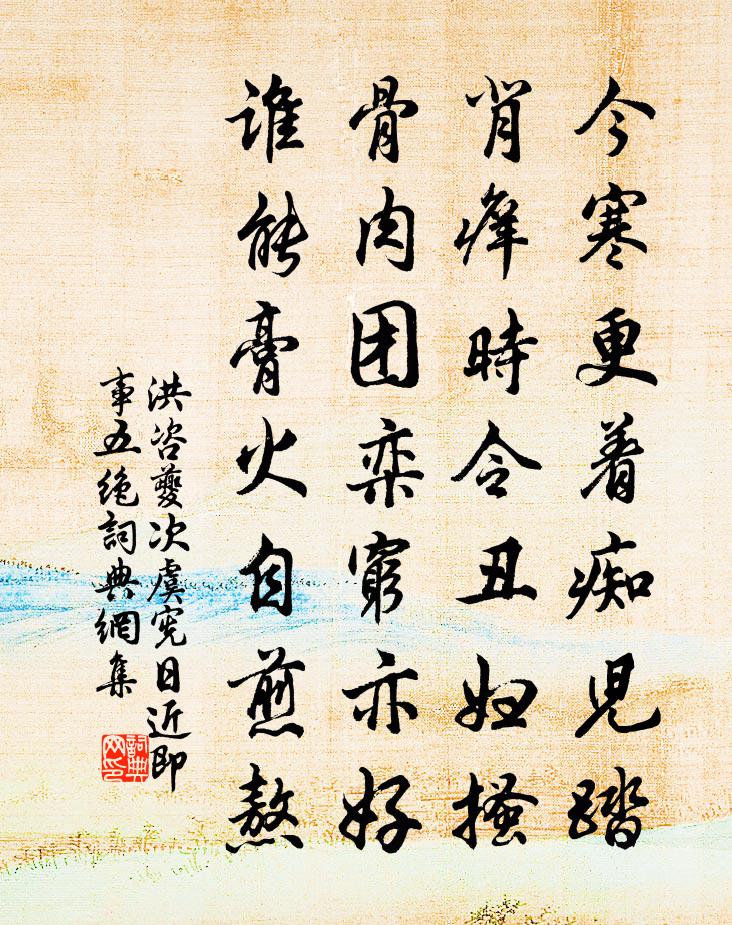 今寒更着痴児踏
背痒時令丑妇搔
骨肉团栾穷亦好
谁能膏火自煎熬
洪咨夔次虞宪日近即
事五绝詞典網集
詞典
网印